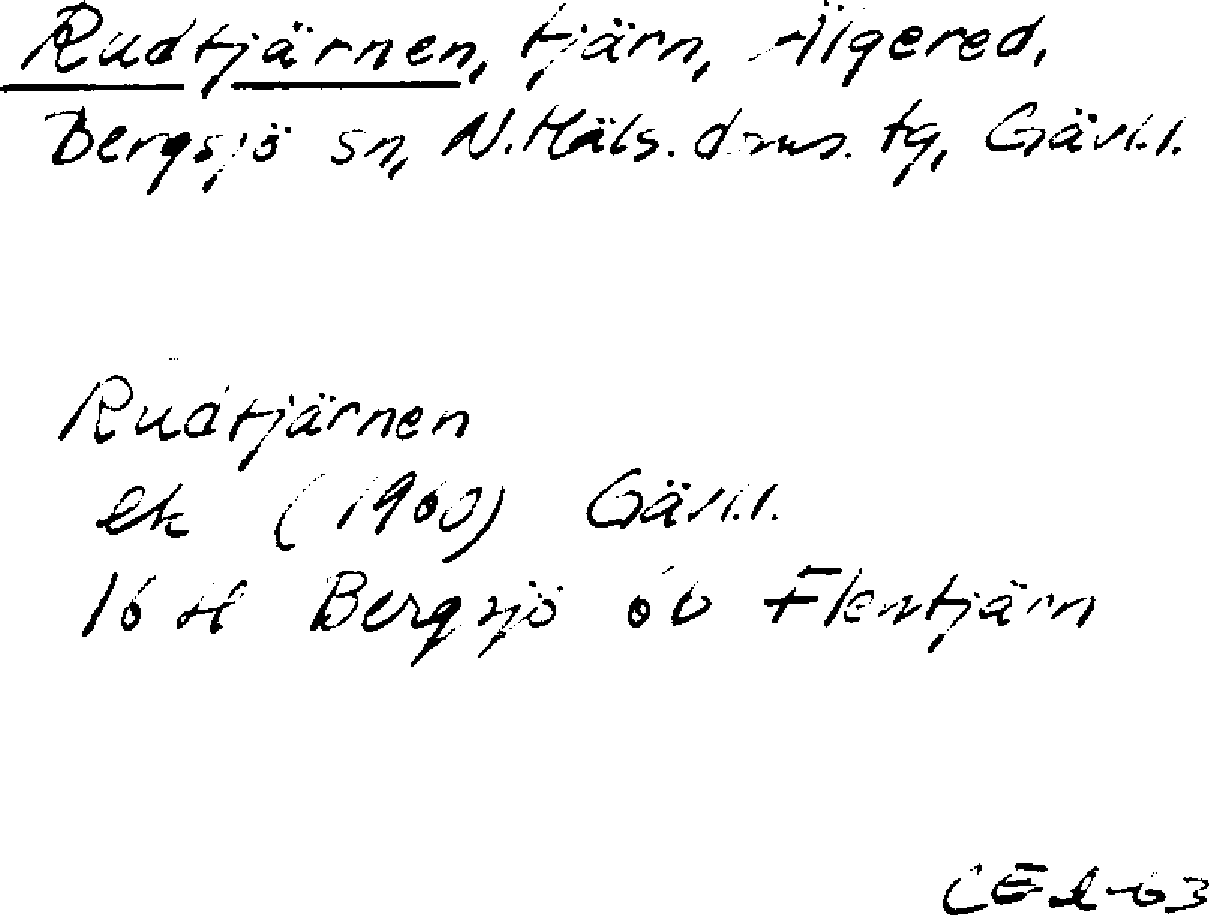 Rudtjärnen, tjärn, Älgered,
Bergsjö sn, N. Häls. doms. tg, Gävl.l.
Rudtjärnen
ek (1960) Gävl.l.
16 H Bergsjö 6b Flentjärn
CEl-63